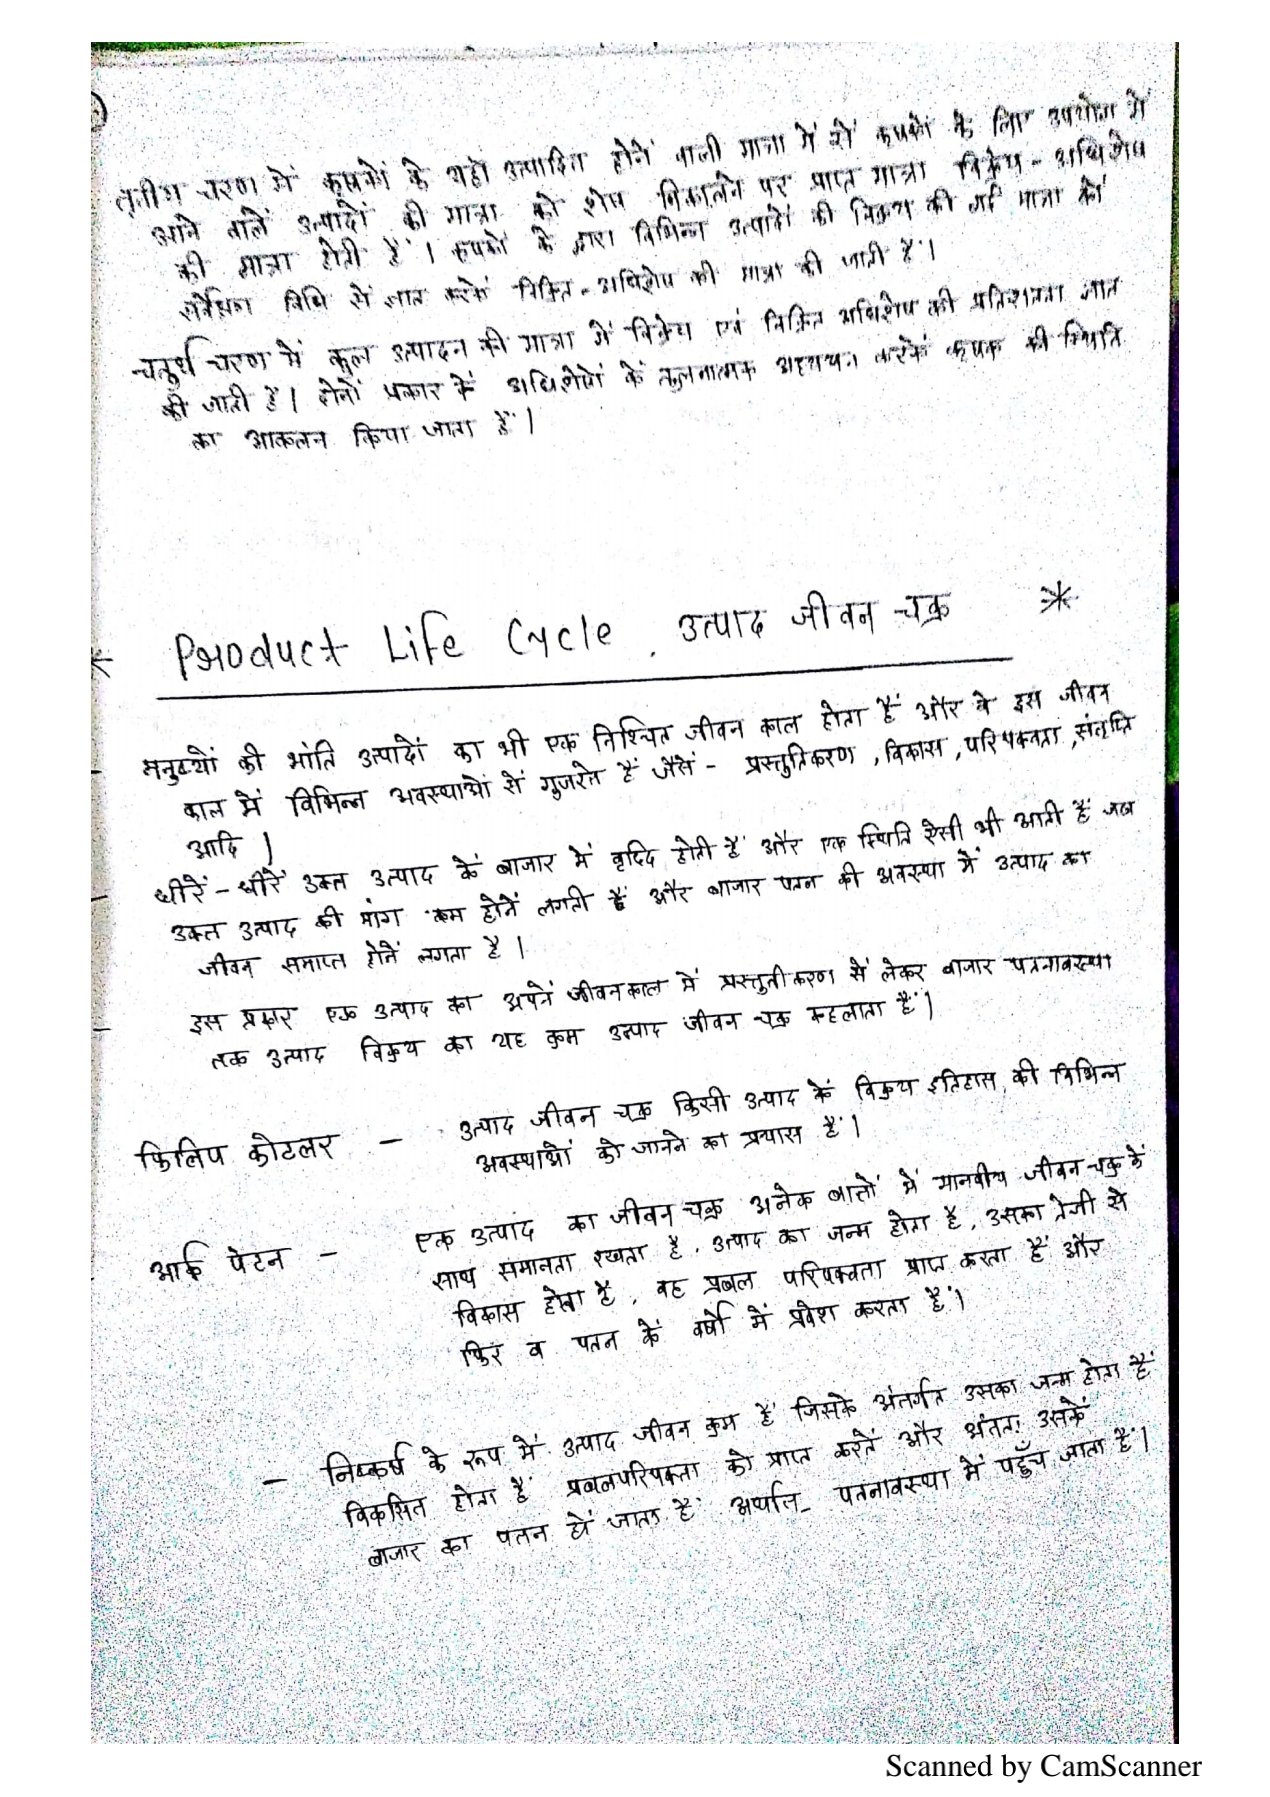 तृतीय चरण में कृषकों के यहां उत्पादित होने वाली मात्रा में से कृषकों के लिए उपयोग में
आने वाले उत्पादों की मात्रा को शेष निकालने पर प्राप्त मात्रा विक्रेय - अधिशेष
की मात्रा होती हैं । कृषकों के द्वारा विभिन्न उत्पादों की विक्रय की गई मात्रा को
सर्वेक्षण विधि से ज्ञात करके विक्रित - अधिशेष की मात्रा की जाती है ।
चतुर्थ चरण में कुल उत्पादन की मात्रा में विक्रेय एवं विक्रित अधिशेष की प्रतिशतता ज्ञात
की जाती है । दोनों प्रकार के अधिशेषों के तुलनात्मक अध्ययन करके कृषक की स्थिति
का आकलन किया जाता हैं ।
Product Life Cycle . उत्पाद जीवन चक्र *
मनुष्यों की भांति उत्पादों का भी एक निश्चित जीवन काल होता हैं और वे इस जीवन
काल में विभिन्न अवस्थाओं से गुजरते हैं जैसे - प्रस्तुतिकरण , विकास , परिपक्वता , संतृप्ति
आदि )
धीरें - धीरें उक्त उत्पाद कें बाजार में वृद्दि होती हैं और एक स्थिति ऐसी भी आती हैं जब
उक्त उत्पाद की मांग कम होनें लगती हैं और बाजार पतन की अवस्था में उत्पाद का
जीवन समाप्त होनें लगता है ।
इस प्रकार एक उत्पाद का अपनें जीवनकाल में प्रस्तुतीकरण सें लेकर बाजार पतनावस्था
तक उत्पाद विक्रय का यह क्रम उत्पाद जीवन चक्र कहलाता हैं ।
फिलिप कोटलर - उत्पाद जीवन चक्र किसी उत्पाद कें विक्रय इतिहास की विभिन्न
अवस्थाओं को जानने का प्रयास हैं ।
आर्क पेटन - एक उत्पाद का जीवन चक्र अनेक बातों में मानवीय जीवन चक्र कें
साथ समानता रखता है , उत्पाद का जन्म होता है , उसका तेजी से
विकास होता हैं , वह प्रबल परिपक्वता प्राप्त करता हैं और
फिर व पतन कें वर्षों में प्रवेश करता हैं ।
- निष्कर्ष के रूप में उत्पाद जीवन क्रम हैं जिसके अंतर्गत उसका जन्म होता हैं
विकसित होता हैं प्रबलपरिपक्ता को प्राप्त करतें और अंततः उसकें
बाजार का पतन हों जाता हैं अर्थात पतनावस्था में पहुँच जाता हैं ।
Scanned by CamScanner